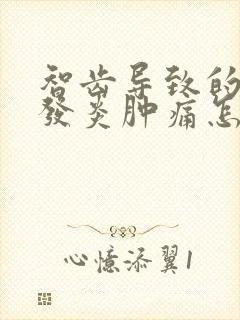 智齿导致的
發炎肿痛怎
心憶添翼1